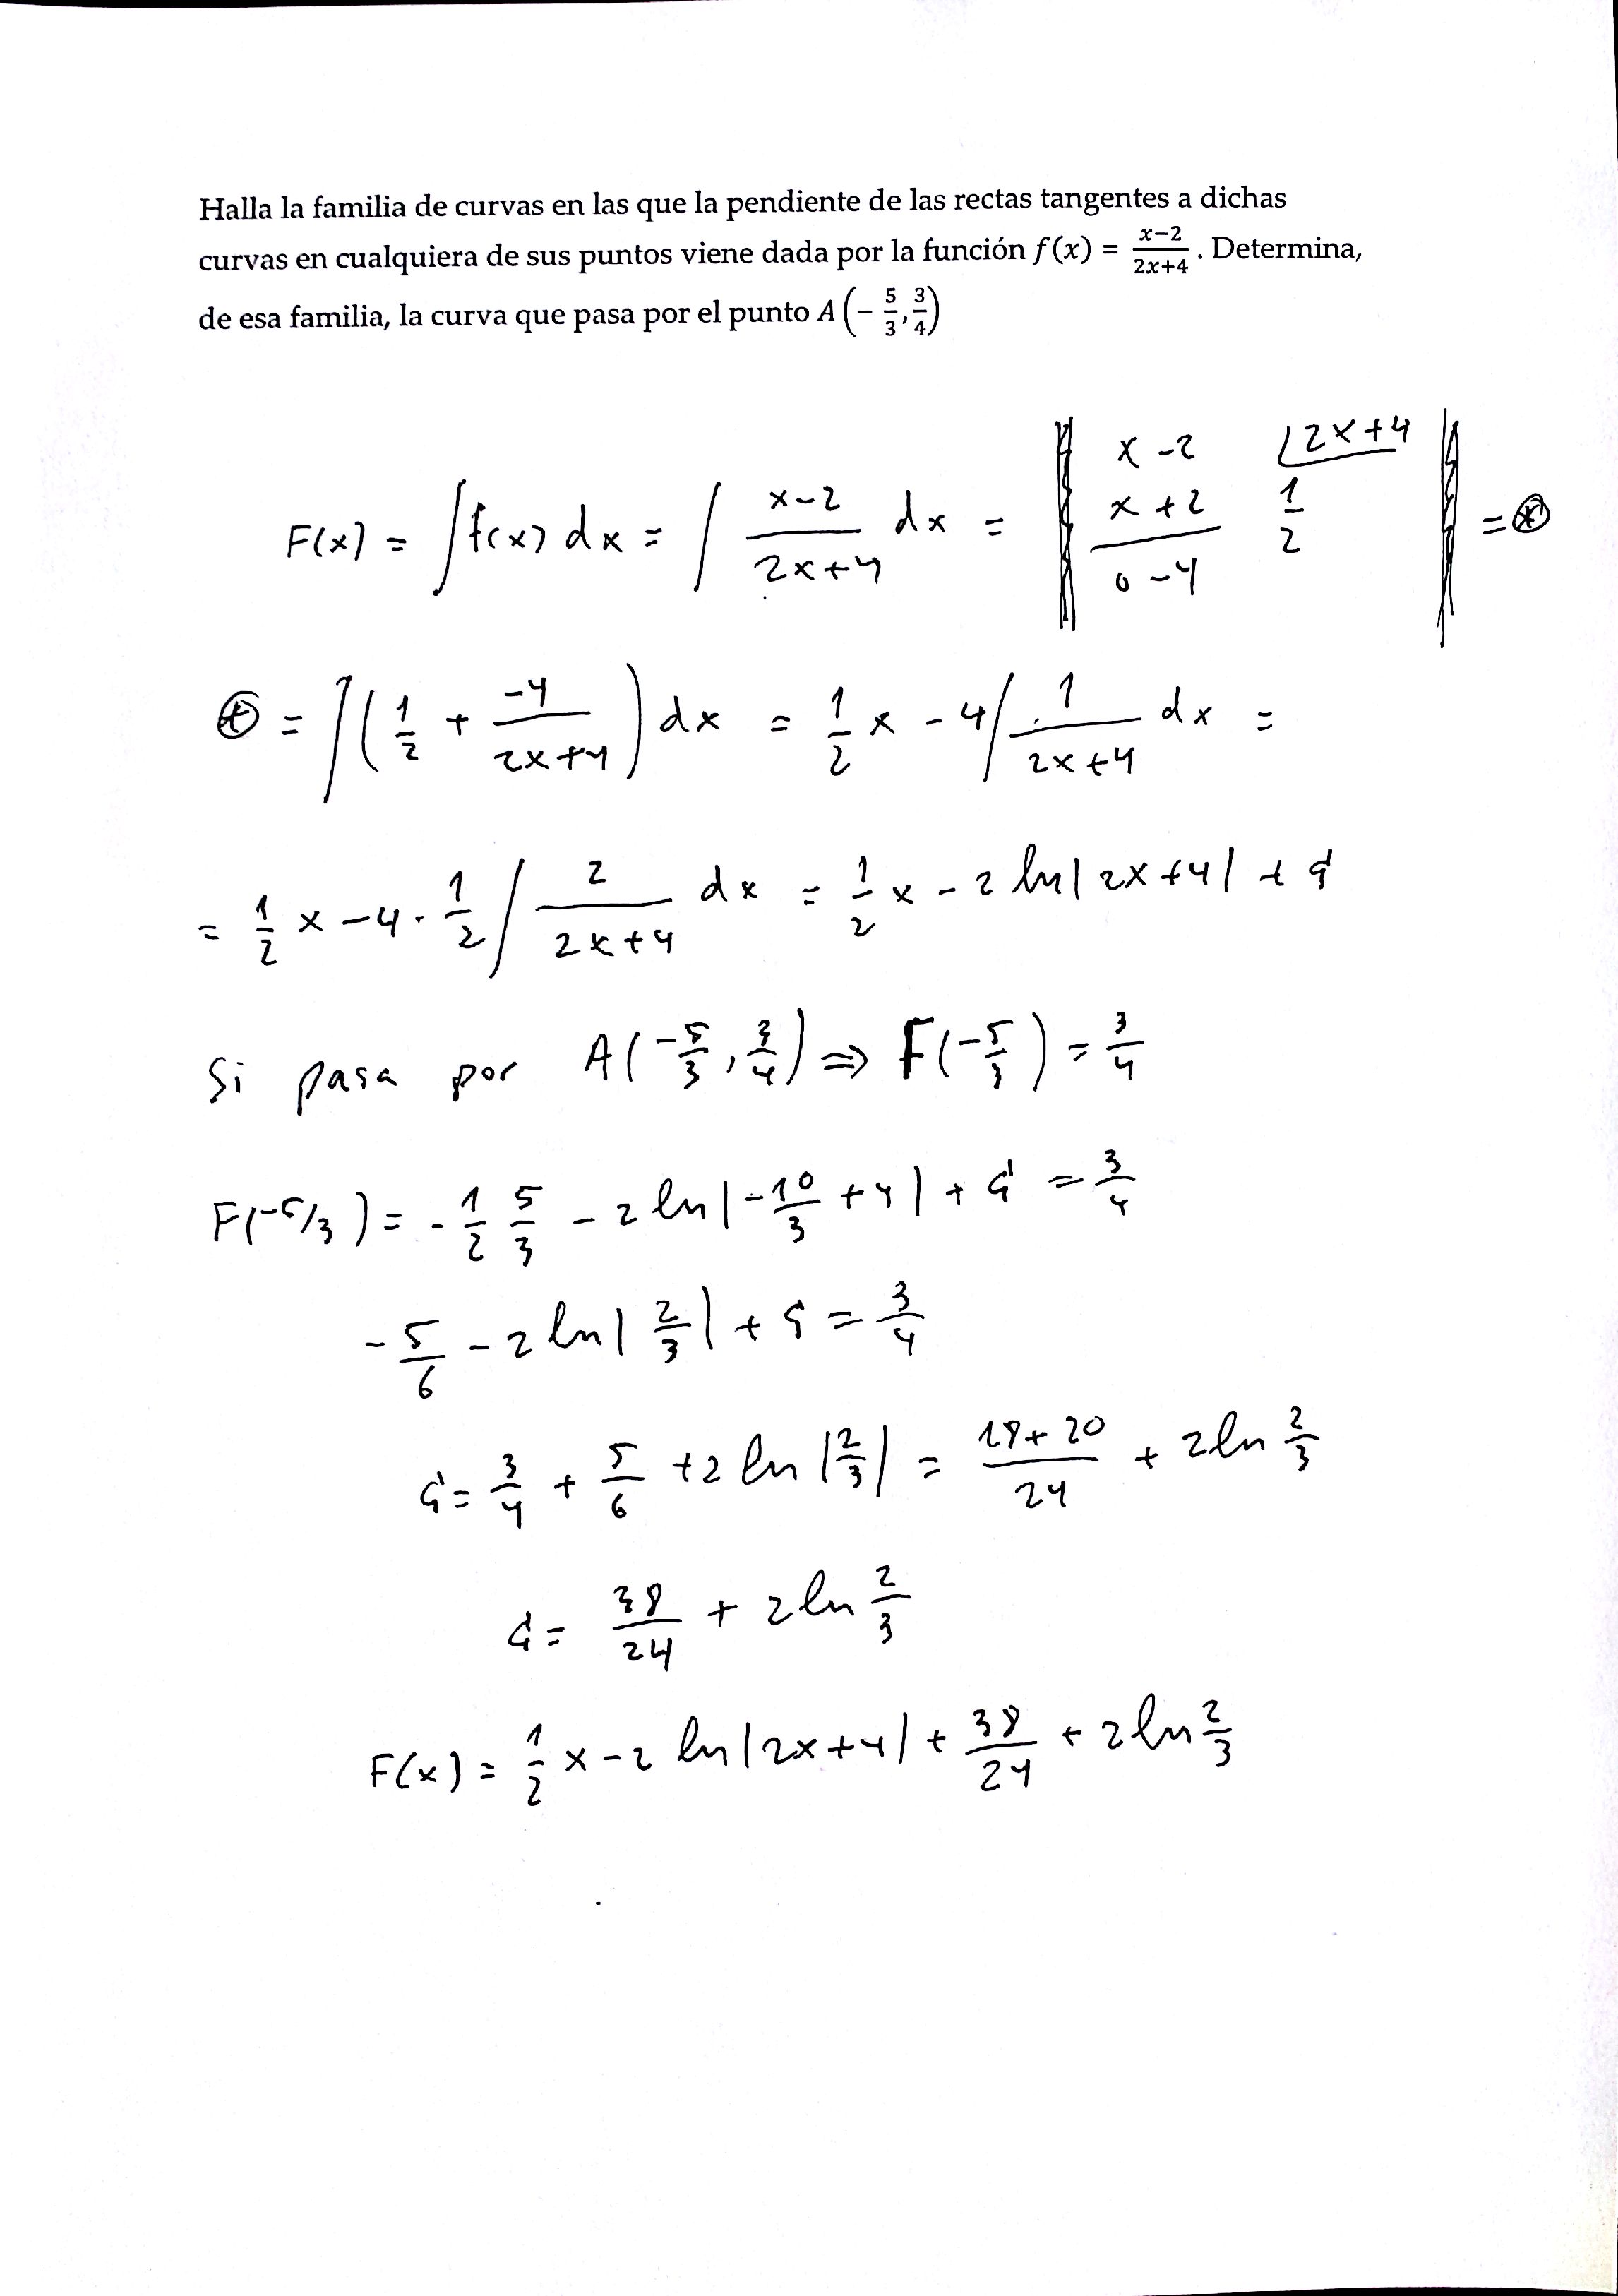 Halla la familia de curvas en las que la pendiente de las rectas tangentes a dichas
curvas en cualquiera de sus puntos viene dada por la función f(x) = (x−2)/(2x+4) . Determina,
de esa familia, la curva que pasa por el punto A(−5/3, 3/4)
F(x) = ∫f(x) dx = ∫ (x-2)/(2x+4) dx = ‖ x-2 | 2x+4 ; x+2 | 1/2 ; 0-4 ‖ = ⊛
⊛ = ∫(1/2 + (-4)/(2x+4)) dx = 1/2 x - 4∫ 1/(2x+4) dx =
= 1/2 x - 4 · 1/2 ∫ 2/(2x+4) dx = 1/2 x - 2 ln|2x+4| + C
Si pasa por A(-5/3, 3/4) ⇒ F(-5/3) = 3/4
F(-5/3) = - 1/2 5/3 - 2 ln|-10/3 + 4| + C = 3/4
-5/6 - 2 ln|2/3| + C = 3/4
C = 3/4 + 5/6 + 2 ln|2/3| = (18+20)/24 + 2 ln 2/3
C = 38/24 + 2 ln 2/3
F(x) = 1/2 x - 2 ln|2x+4| + 38/24 + 2 ln 2/3